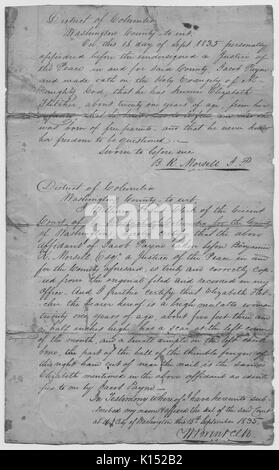 District of Columbia
Washington County to wit.
On this 15 day of Sept 1835 personally
appeared before the undersigned a Justice of
the Peace in and for Said County Jacob Payne
and made oath on the Holy Evangely of Al-
mighty God, that he has known Elizabeth
Fletcher, about twenty one years of age, from her
was born of free parents, and that he never knew
her freedom to be questioned
Sworn to before me
B. K. Morsell J. P
District of Columbia
Washington County to wit.
of the Circuit
Court of for the County
of Washington that the above
Affidavit of Jacob Payne taken before Benjamin
K. Morsell Esqr a Justice of the Peace in and
for the County aforesaid, is truly and correctly cop-
ied from the original filed and recorded in my
Office. And I further certify that Elizabeth Flet-
cher the bearer hereof is a bright mulatto woman
twenty one years of age, about five feet three and
half inches high, has a scar at the left corner
of the mouth, and a on the left cheek
bone, the part of the ball of the thumb
of the right hand cut off near the nail is the same
Elizabeth mentioned in the above affidavit as identi-
fied to me by Jacob Payne.
In Testimony whereof I have hereunto sub-
scribed my name & affixed the seal of the said Court
at the City of Washington this 15th September 1835.
W Brent Clk
alamy
alamy
Image ID: K152B2
www.alamy.com